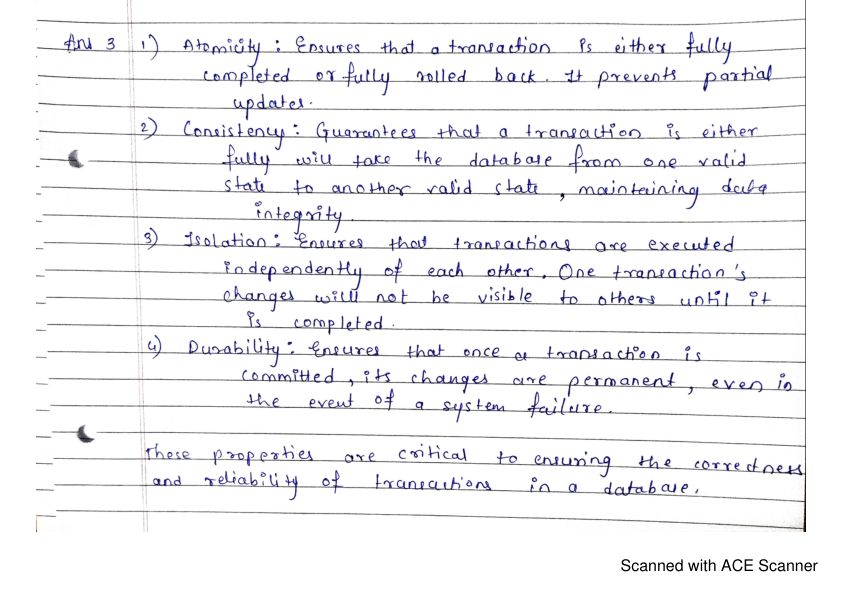 Ans 3 1) Atomicity : Ensures that a transaction is either fully
completed or fully rolled back. It prevents partial
updates.
2) Consistency : Guarantees that a transaction is either
fully will take the database from one valid
state to another valid state, maintaining data
integrity.
3) Isolation : Ensures that transactions are executed
independently of each other. One transaction's
changes will not be visible to others until it
is completed.
4) Durability : Ensures that once a transaction is
committed, its changes are permanent, even in
the event of a system failure.
These properties are critical to ensuring the correctness
and reliability of transactions in a database.
Scanned with ACE Scanner